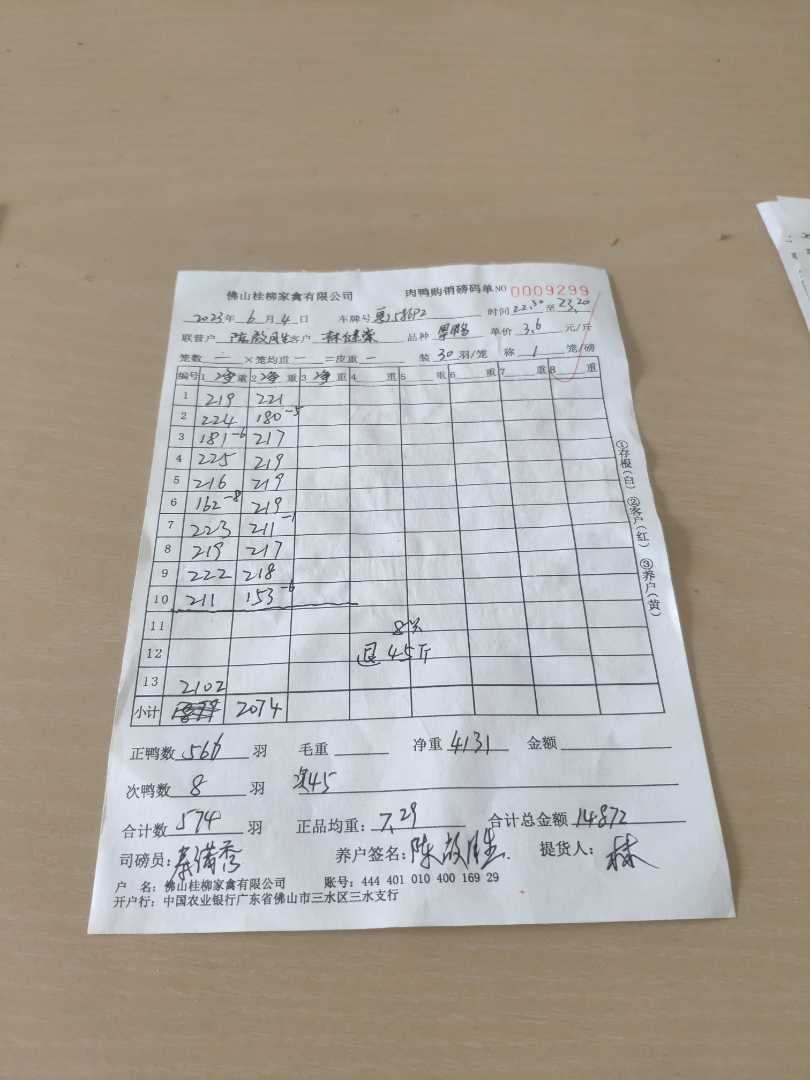 佛山桂柳家禽有限公司 肉鸭购销磅码单 NO 0009299
2023年 6 月 4 日 车牌号 粤 时间 22.30 至 23.20
联营户 陈啟胜 客户 林 品种 单价 3.6 元/斤
笼数 一 ×笼均重 一 =皮重 一 装 30 羽/笼 称 1 笼/磅
编号 1 净重 2 净重 3 净重 4 重 5 重 6 重 7 重 8 重
1 219 221
2 224 180-5
3 181-6 217
4 225 219
5 216 219
6 162-8 219
7 223 211-1
8 219 217
9 222 218
10 211 153-6
11 8只
12 退45斤
13 2102
小计 2074
正鸭数 566 羽 毛重 净重 4131 金额
次鸭数 8 羽 次45
合计数 574 羽 正品均重: 7.29 合计总金额 14872
司磅员: 养户签名: 陈啟胜 提货人: 林
户 名: 佛山桂柳家禽有限公司 账号: 444 401 010 400 169 29
开户行: 中国农业银行广东省佛山市三水区三水支行
①存根(白) ②客户(红) ③养户(黄)